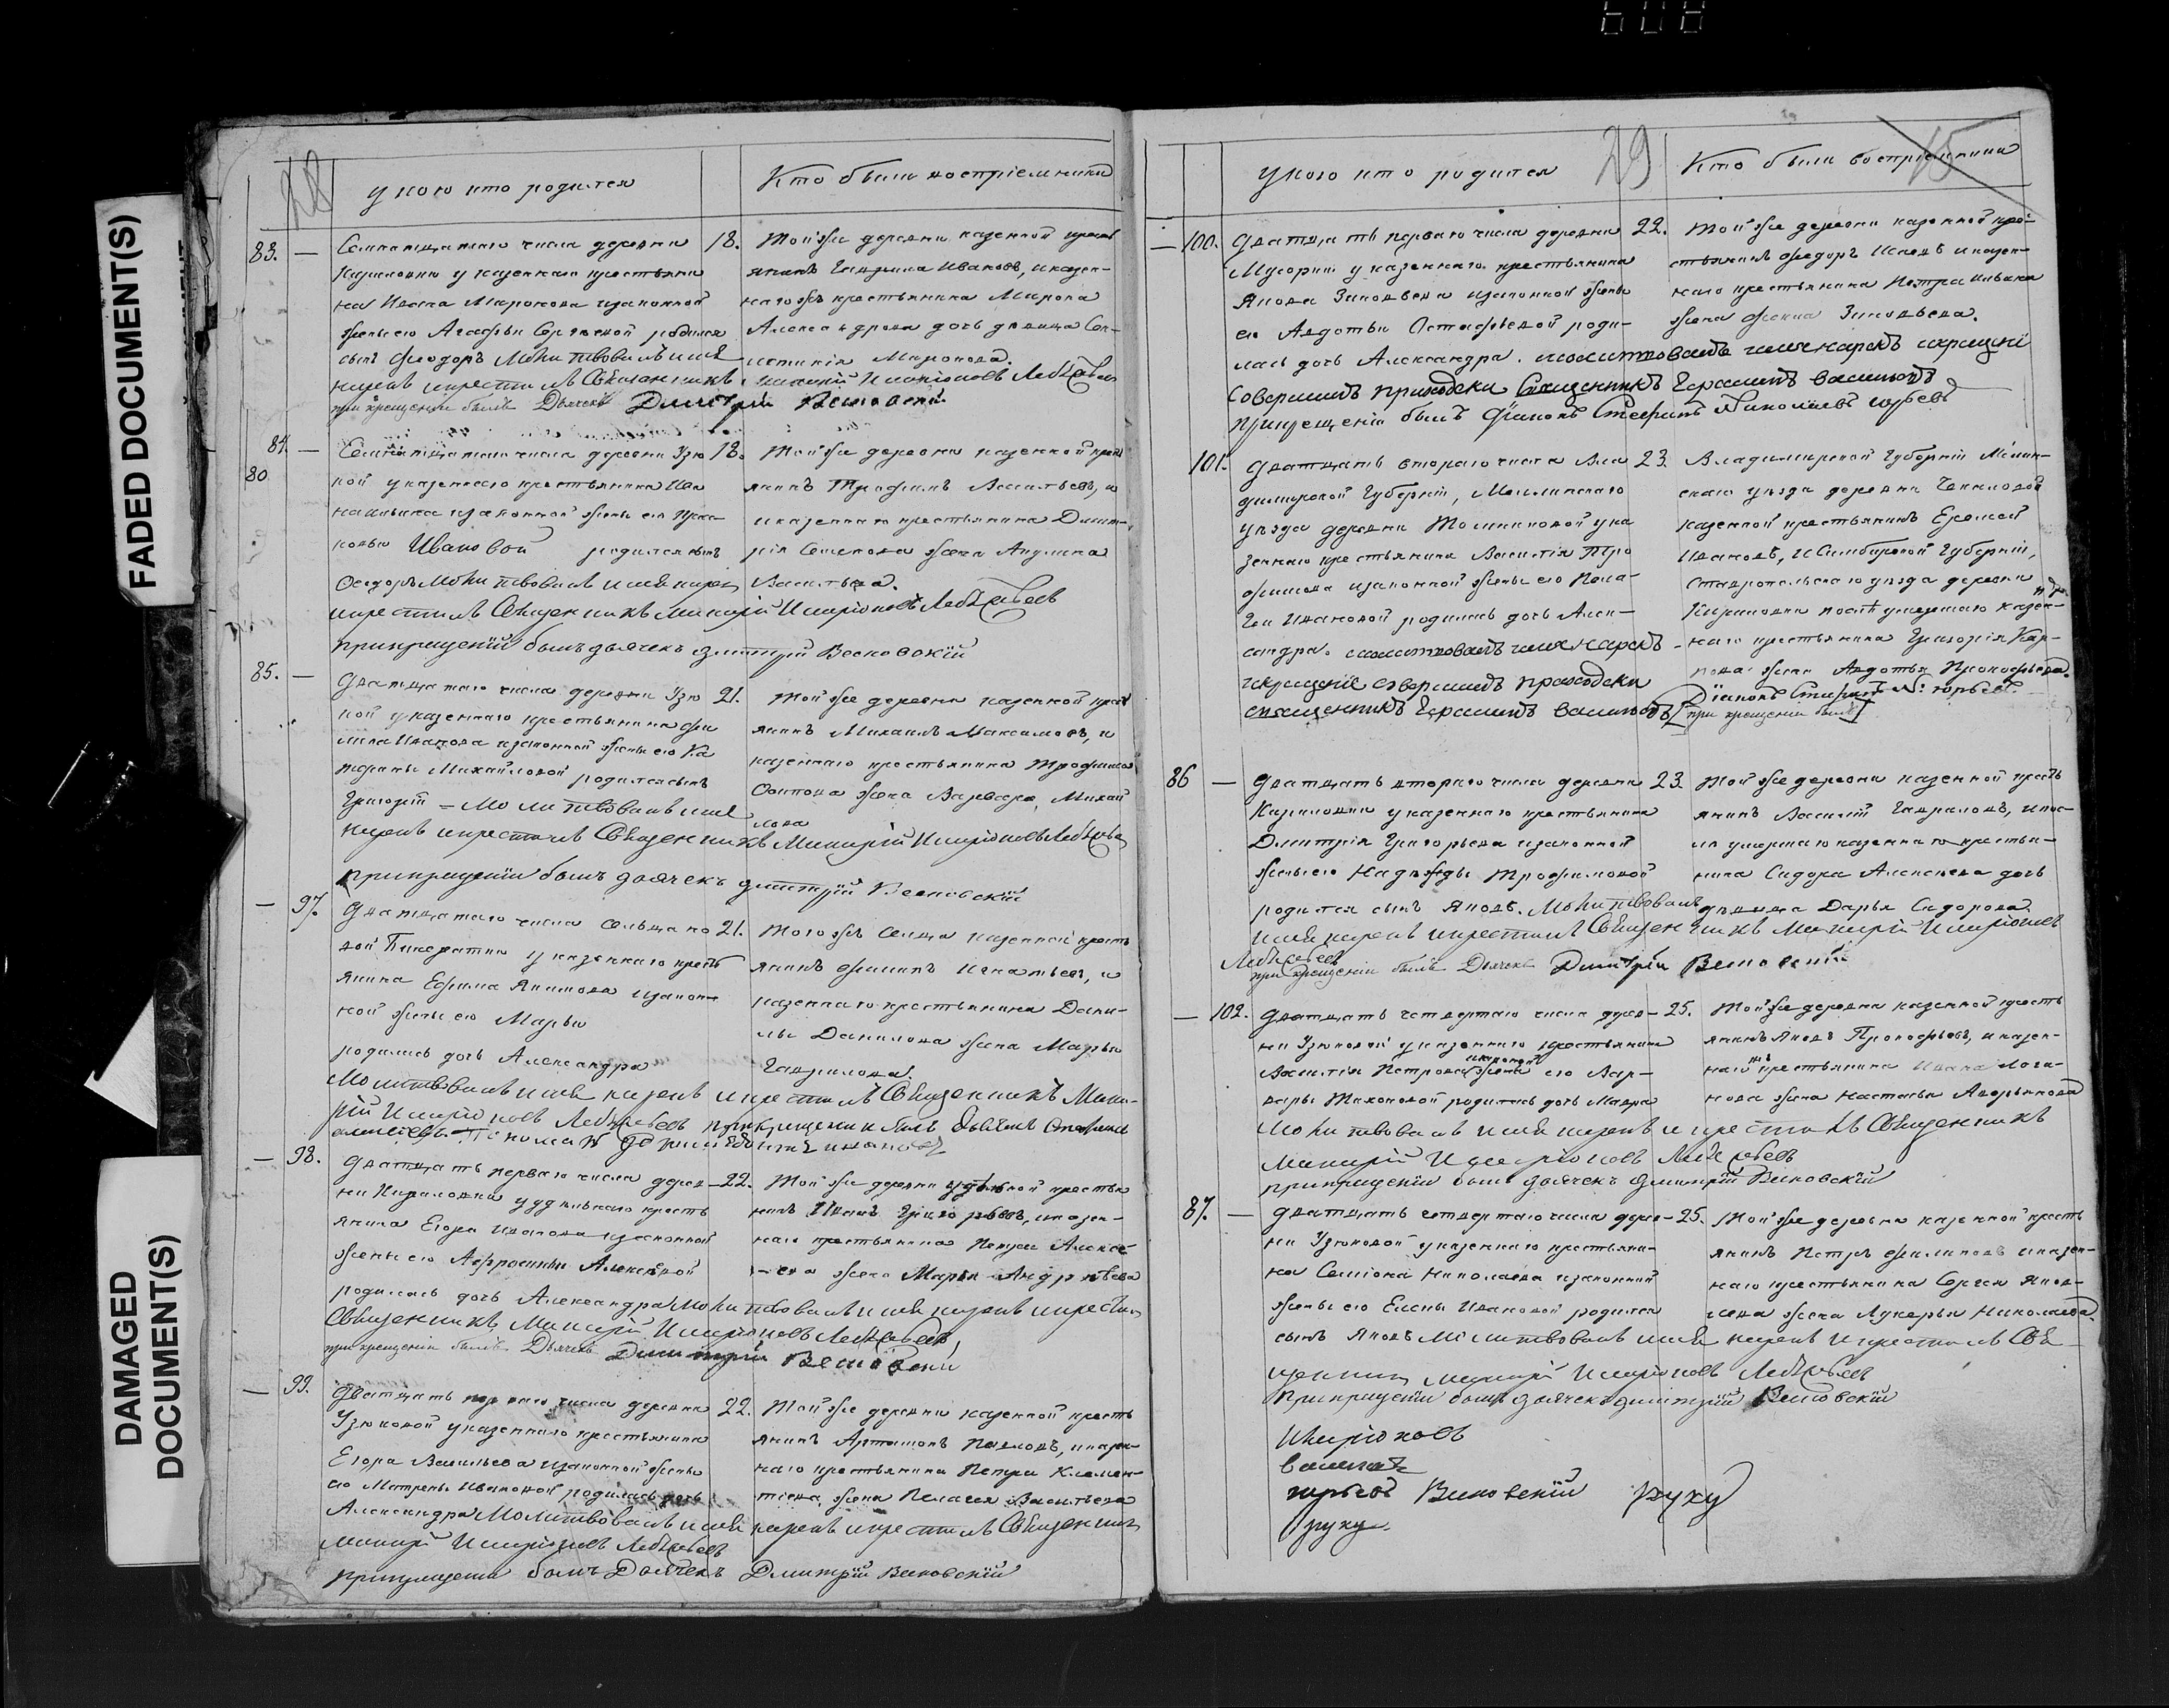 608
FADED DOCUMENT(S)
DAMAGED
DOCUMENT(S)
28
у кого кто родился
Кто были воспріемники
83. —
Семнатцатаго числа деревни
Кириловки у казеннаго крестьяни
на Ивана Миронова изаконной
жены его Агафьи Сергѣевой родился
сынъ Феодоръ Молитвовалъ имя
нарекъ икрестилъ Священникъ
при крещеніи былъ Дьячекъ Димитрій Весновскій
18. Той же деревни казенной кресть
янинъ Гаврила Ивановъ, иказен-
наго жъ крестьянина Мирона
Александрова дочь девица
Миронова.
Иларіоновъ Лебедевъ
84. —
80
Семнатцатаго числа деревни Узю
кой у казеннаго крестьянина Ива
на изаконной жены его Прас-
ковьи Ивановой родился сынъ
Феодоръ Молитвовалъ имя нарек
икрестилъ Священникъ Макарій Иларіоновъ Лебедевъ
прикрещеніи былъ дьячекъ Димитрій Весновскій
18. Той же деревни казенной крест
янинъ Трофимъ Васильевъ, и
иказеннаго крестьянина Димит-
рія Семенова жена Акулина
Васильева.
85. —
Дватцатаго числа деревни Узю
кой у казеннаго крестьянина Фи
липа Иванова изаконной жены его Ка
терины Михайловой родился сынъ
Григорій — Молитвовалъ имя
нарекъ икрестилъ Священникъ Макарій Иларіоновъ Лебедевъ
прикрещеніи былъ дьячекъ Димитрій Весновскій
21. Той же деревни казенной крест
янинъ Михаилъ Максимовъ, и
казеннаго крестьянина Трофима
Осипова жена Варвара Михай
лова
— 97.
Дватцатаго числа сельца но
вой Бинератки у казеннаго кресть
янина Ефима Якимова изакон-
ной жены его Марьи
родилась дочь Александра
Молитвовалъ имя нарекъ икрестилъ Священникъ Мака-
рій Иларіоновъ Лебедевъ прикрещеніи былъ дьячекъ
21. Того жъ сельца казенной кресть
янинъ Филипъ Игнатьевъ, и
казеннаго крестьянина Дани-
лы Данилова жена Марья
Гаврилова.
— 98.
Дватцать перваго числа дерев-
ни Кириловки у удѣльнаго кресть
янина Егора Иванова изаконной
жены его Афросиньи Алексѣевой
родилась дочь Александра Молитвовалъ имя нарекъ икрестил
Священникъ Макарій Иларіоновъ Лебедевъ
при крещеніи былъ Дьячекъ Димитрій Весновскій
22. Той же деревни удѣльной крестья
нинъ Иванъ Григорьевъ, иказен-
наго крестьянина Петра Алексѣ
-ева жена Марья Андреева
— 99.
Дватцать перваго числа деревни
Узюковой у казеннаго крестьянина
Егора Васильева изаконной жены
его Матрены Ивановой родилась дочь
Александра Молитвовалъ имя нарекъ икрестилъ Священник
Макарій Иларіоновъ Лебедевъ
прикрещеніи былъ Дьячекъ Димитрій Весновскій
22. Той же деревни казенной кресть
янинъ Артамонъ Павловъ, иказен-
наго крестьянина Петра Клемен-
тіева жена Пелагея Васильева
29
15
у кого кто родился
Кто были воспріемники
— 100.
Дватцать перваго числа деревни
Мусорки у казеннаго крестьянина
Якова Зиновьева изаконной жены
его Авдотьи Остафьевой роди-
лась дочь Александра. молитвовалъ имя нарекъ икрещеніе
Совершилъ приходскій Священникъ Герасимъ Васильевъ
прикрещеніи былъ Діаконъ Стефанъ Николаевъ Юрьевъ
22. Той же деревни казенной кре-
стьянинъ Федоръ Исаевъ иказен-
наго крестьянина Петра
жена Фекла Зиновьева.
101.
Дватцать втораго числа Вла
димирской Губерніи, Меленкскаго
уѣзда деревни Толшиковой у ка
зеннаго крестьянина Василія Тро
фимова изаконной жены его Пела-
геи Ивановой родилась дочь Алек-
сандра. молитвовалъ имя нарекъ
икрещеніе совершилъ приходскій
священникъ Герасимъ Васильевъ
23. Владимирской Губерніи Мелен-
скаго уѣзда деревни
казенной крестьянинъ Еремей
Ивановъ, и Симбирской Губерніи,
Ставропольскаго уѣзда деревни
Кириловки послѣ умершаго казен-
наго крестьянина Григорія Кар-
пова жена Авдотья Прокофьева.
Діаконъ Стефанъ Н: Юрьевъ.
[при крещеніи былъ]
86 —
Дватцать втораго числа деревни
Кириловки у казеннаго крестьянина
Дмитрія Григорьева изаконной
жены его Надѣжды Трофимовой
родился сынъ Яковъ. Молитвовалъ
имя нарекъ икрестилъ Священникъ Макарій Иларіоновъ
Лебедевъ
при крещеніи былъ Дьячекъ Димитрій Весновскій
23 Той же деревни казенной кресть
янинъ Василій Гавриловъ, ипос-
лѣ умершаго казеннаго крестья-
нина Сидора Алексѣева дочь
дѣвица Дарья Сидорова.
— 102.
Дватцать четвертаго числа дерев-
ни Узюковой у казеннаго крестьянина
Василія Петрова изаконной жены его Вар-
вары Тихоновой родилась дочь Мавра
Молитвовалъ имя нарекъ и крестилъ Священникъ
Макарій Иларіоновъ Лебедевъ
прикрещеніи былъ дьячекъ Димитрій Весновскій
25. Той же деревни казенной кресть
янинъ Яковъ Прокофьевъ, иказен-
наго жъ крестьянина Ивана Логи-
нова жена Настасья Аверьянова
87. —
Дватцать четвертаго числа дерев-
ни Узюковой у казеннаго крестьяни-
на Семіона Николаева изаконной
жены его Елены Ивановой родился
сынъ Яковъ Молитвовалъ имя нарекъ икрестилъ Свя-
щенникъ Макарій Иларіоновъ Лебедевъ
Прикрещеніи былъ дьячекъ Димитрій Весновскій
25. Той же деревни казенной кресть
янинъ Петръ Филиповъ иказен-
наго крестьянина Сергея Яков-
лева жена Лукерья Николаева.
Иларіоновъ
Васильевъ
Юрьевъ Весновскій руку
руку.